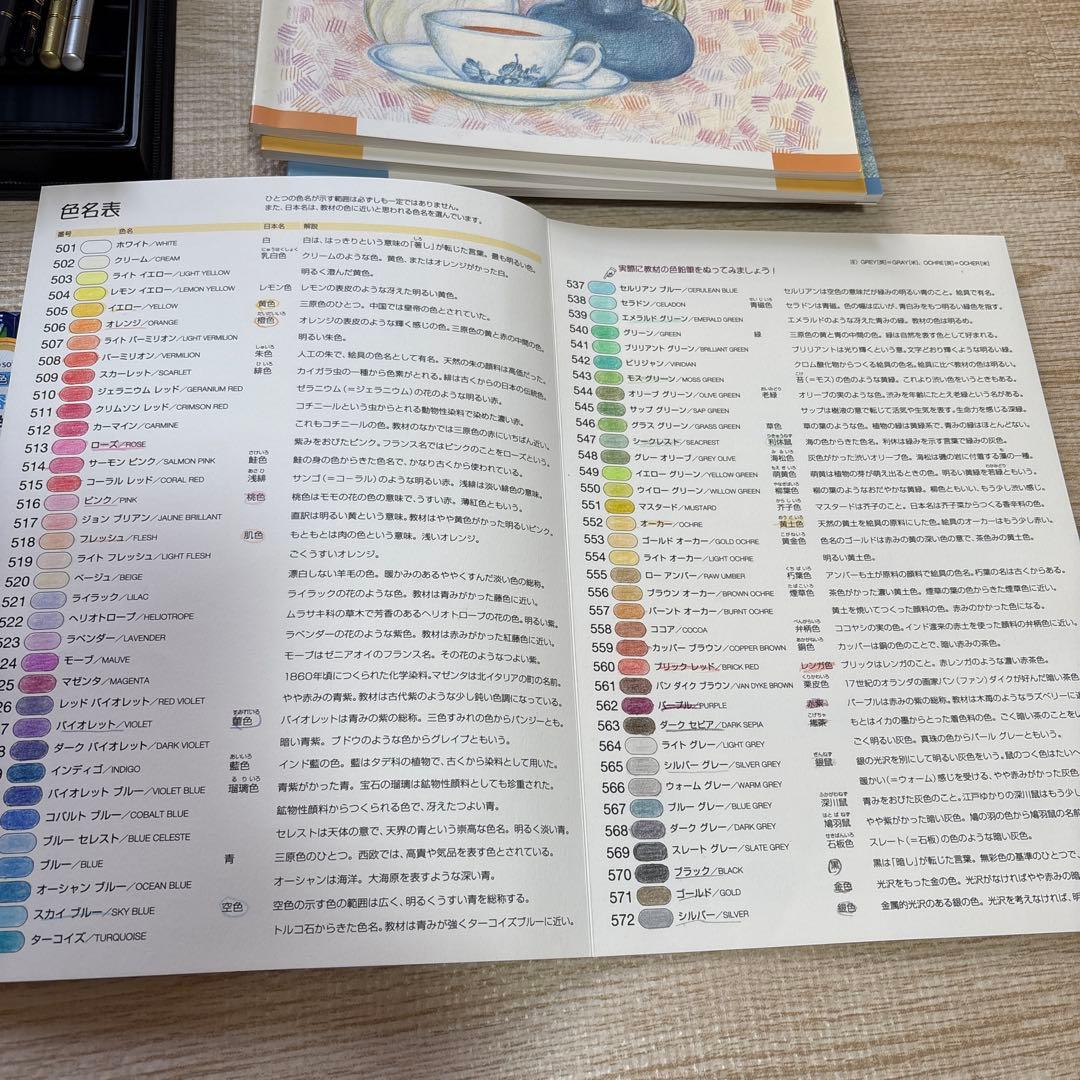 色名表
ひとつの色名が示す範囲は必ずしも一定ではありません。
また、日本名は、教材の色に近いと思われる色名を選んでいます。
番号 色名 日本名 解説
501 ホワイト/WHITE 白 白は、はっきりという意味の「著し」が転じた言葉。最も明るい色。
502 クリーム/CREAM 乳白色 クリームのような色。黄色、またはオレンジがかった白。
503 ライト イエロー/LIGHT YELLOW 明るく澄んだ黄色。
504 レモン イエロー/LEMON YELLOW レモン色 レモンの表皮のような冴えた明るい黄色。
505 イエロー/YELLOW 黄色 三原色のひとつ。中国では皇帝の色とされていた。
506 オレンジ/ORANGE 橙色 オレンジの表皮のような輝く感じの色。三原色の黄と赤の中間の色。
507 ライト バーミリオン/LIGHT VERMILION 明るい朱色。
508 バーミリオン/VERMILION 朱色 人工の朱で、絵具の色名として有名。天然の朱の顔料は高価だった。
509 スカーレット/SCARLET 緋色 カイガラ虫の一種から色素がとれる。緋は古くからの日本の伝統色。
510 ジェラニウム レッド/GERANIUM RED ゼラニウム(=ジェラニウム)の花のような明るい赤。
511 クリムソン レッド/CRIMSON RED コチニールという虫からとれる動物性染料で染めた濃い赤。
512 カーマイン/CARMINE これもコチニールの色。教材のなかでは三原色の赤にいちばん近い。
513 ローズ/ROSE 紫みをおびたピンク。フランス名ではピンクのことをローズという。
514 サーモン ピンク/SALMON PINK 鮭色 鮭の身の色からきた色名で、かなり古くから使われている。
515 コーラル レッド/CORAL RED 浅緋 サンゴ(=コーラル)のような明るい赤。浅緋は淡い緋色の意味。
516 ピンク/PINK 桃色 桃色はモモの花の色の意味で、うすい赤。薄紅色ともいう。
517 ジョン ブリアン/JAUNE BRILLANT 直訳は明るい黄という意味。教材はやや黄色がかった明るいピンク。
518 フレッシュ/FLESH 肌色 もともとは肉の色という意味。浅いオレンジ。
519 ライト フレッシュ/LIGHT FLESH ごくうすいオレンジ。
520 ベージュ/BEIGE 漂白しない羊毛の色。暖かみのあるややくすんだ淡い色の総称。
521 ライラック/LILAC ライラックの花のような色。教材は青みがかった藤色に近い。
522 ヘリオトロープ/HELIOTROPE ムラサキ科の草木で芳香のあるヘリオトロープの花の色。明るい紫。
523 ラベンダー/LAVENDER ラベンダーの花のような紫色。教材は赤みがかった紅藤色に近い。
24 モーブ/MAUVE モーブはゼニアオイのフランス名。その花のようなつよい紫。
25 マゼンタ/MAGENTA 1860年頃につくられた化学染料。マゼンタは北イタリアの町の名前。
26 レッド バイオレット/RED VIOLET やや赤みの青紫。教材は古代紫のような少し鈍い色調になっている。
7 バイオレット/VIOLET 菫色 バイオレットは青みの紫の総称。三色すみれの色からパンジーとも。
8 ダーク バイオレット/DARK VIOLET 暗い青紫。ブドウのような色からグレイプともいう。
9 インディゴ/INDIGO 藍色 インド藍の色。藍はタデ科の植物で、古くから染料として用いた。
バイオレット ブルー/VIOLET BLUE 瑠璃色 青紫がかった青。宝石の瑠璃は鉱物性顔料としても珍重された。
コバルト ブルー/COBALT BLUE 鉱物性顔料からつくられる色で、冴えたつよい青。
ブルー セレスト/BLUE CELESTE セレストは天体の意で、天界の青という崇高な色名。明るく淡い青。
ブルー/BLUE 青 三原色のひとつ。西欧では、高貴や気品を表す色とされている。
オーシャン ブルー/OCEAN BLUE オーシャンは海洋。大海原を表すような深い青。
スカイ ブルー/SKY BLUE 空色 空色の示す色の範囲は広く、明るくうすい青を総称する。
ターコイズ/TURQUOISE トルコ石からきた色名。教材は青みが強くターコイズブルーに近い。
注) GREY[英]=GRAY[米]、OCHRE[英]=OCHER[米]
実際に教材の色鉛筆をぬってみましょう!
537 セルリアン ブルー/CERULEAN BLUE セルリアンは空色の意味だが緑みの明るい青のこと。絵具で有名。
538 セラドン/CELADON 青磁色 セラドンは青磁。色の幅は広いが、青白みをもつ明るい緑色を指す。
539 エメラルド グリーン/EMERALD GREEN エメラルドのような冴えた青みの緑。教材の色は明るめ。
540 グリーン/GREEN 緑 三原色の黄と青の中間の色。緑は自然を表す色として好まれる。
541 ブリリアント グリーン/BRILLIANT GREEN ブリリアントは光り輝くという意。文字どおり輝くような明るい緑。
542 ビリジャン/VIRIDIAN クロム酸化物からつくる絵具の色名。絵具に比べ教材の色は明るい。
543 モス グリーン/MOSS GREEN 苔(=モス)の色のような黄緑。これより渋い色をいうときもある。
544 オリーブ グリーン/OLIVE GREEN 老緑 オリーブの実のような色。渋みを年齢にたとえ老緑という名がある。
545 サップ グリーン/SAP GREEN サップは樹液の意で転じて活気や生気を表す。生命力を感じる深緑。
546 グラス グリーン/GRASS GREEN 草色 草の葉のような色。植物の緑は黄緑系で、青みの緑はほとんどない。
547 シークレスト/SEACREST 利休鼠 海の色からきた色。利休は緑みを示す言葉で緑みの灰色。
548 グレー オリーブ/GREY OLIVE 海松色 灰色がかった渋いオリーブ色。海松は磯の岩に付着する藻の一種。
549 イエロー グリーン/YELLOW GREEN 萌黄色 萌黄は植物の芽が萌え出るときの色。明るい黄緑を若緑ともいう。
550 ウイロー グリーン/WILLOW GREEN 柳葉色 柳の葉のようなおだやかな黄緑。柳色ともいい、もう少し渋い感じ。
551 マスタード/MUSTARD 芥子色 マスタードは芥子のこと。日本名は芥子菜からつくる香辛料の色。
552 オーカー/OCHRE 黄土色 天然の黄土を絵具の原料にした色。絵具のオーカーはもう少し赤い。
553 ゴールド オーカー/GOLD OCHRE 黄金色 色名のゴールドは赤みの黄の深い色の意で、茶色みの黄土色。
554 ライト オーカー/LIGHT OCHRE 明るい黄土色。
555 ロー アンバー/RAW UMBER 朽葉色 アンバーも土が原料の顔料で絵具の色名。朽葉の名は古くからある。
556 ブラウン オーカー/BROWN OCHRE 煙草色 茶色がかった濃い黄土色。煙草の葉の色からきた煙草色に近い。
557 バーント オーカー/BURNT OCHRE 黄土を焼いてつくった顔料の色。赤みのかかった色になる。
558 ココア/COCOA 弁柄色 ココヤシの実の色。インド渡来の赤土を使った顔料の弁柄色に近い。
559 カッパー ブラウン/COPPER BROWN 銅色 カッパーは銅の色のことで、暗い赤みの茶色。
560 ブリック レッド/BRICK RED レンガ色 ブリックはレンガのこと。赤レンガのような濃い赤茶色。
561 バン ダイク ブラウン/VAN DYKE BROWN 栗皮色 17世紀のオランダの画家バン(ファン)ダイクが好んだ暗い茶色
562 パープル/PURPLE 赤紫 パープルは赤みの紫の総称。教材は木苺のようなラズベリーに近
563 ダーク セピア/DARK SEPIA 焦茶 もとはイカの墨からとった着色料の色。ごく暗い茶のことをい
564 ライト グレー/LIGHT GREY ごく明るい灰色。真珠の色からパール グレーともいう。
565 シルバー グレー/SILVER GREY 銀鼠 銀の光沢を別にして明るい灰色をいう。鼠のつく色はたいへ
566 ウォーム グレー/WARM GREY 暖かい(=ウォーム)感じを受ける、やや赤みがかった灰色
567 ブルー グレー/BLUE GREY 深川鼠 青みをおびた灰色のこと。江戸ゆかりの深川鼠はもう少し
568 ダーク グレー/DARK GREY 鳩羽鼠 やや紫がかった暗い灰色。鳩の羽の色から鳩羽鼠の名前
569 スレート グレー/SLATE GREY 石板色 スレート(=石板)の色のような暗い灰色。
570 ブラック/BLACK 黒 黒は「暗し」が転じた言葉。無彩色の基準のひとつで、
571 ゴールド/GOLD 金色 光沢をもった金の色。光沢がなければやや赤みの暗
572 シルバー/SILVER 銀色 金属的光沢のある銀の色。光沢を考えなければ、明